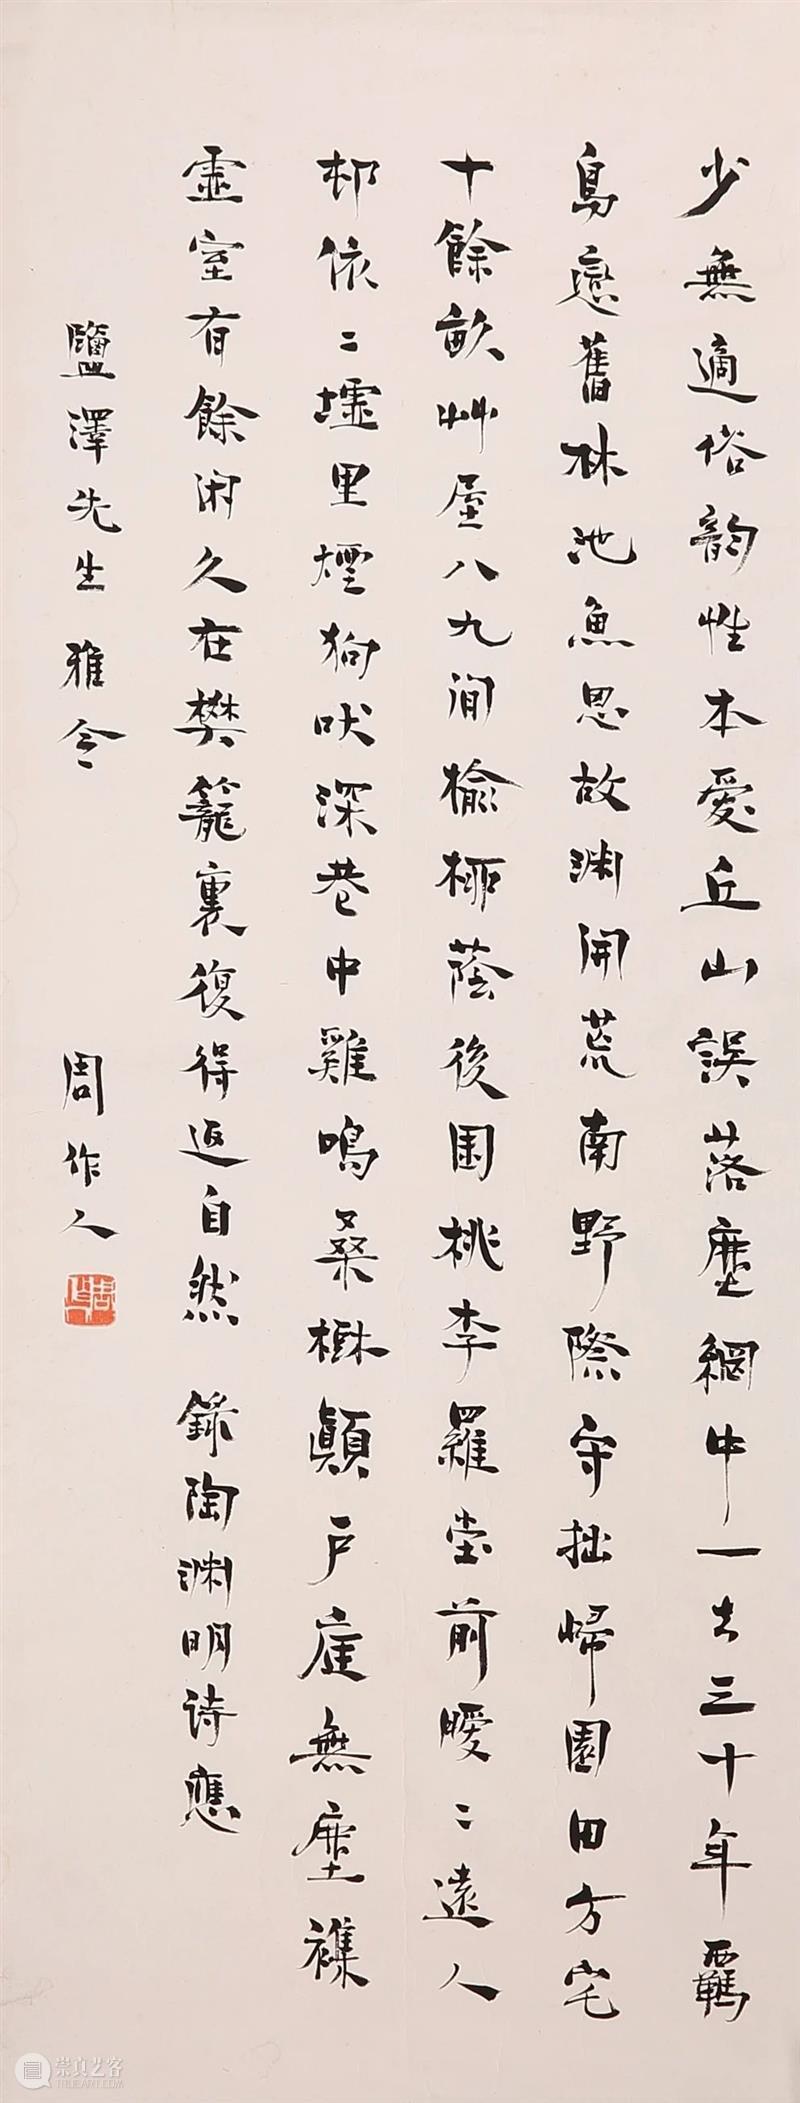 少無適俗韵性本愛丘山誤落塵網中一去三十年羈
鳥戀舊林池魚思故渊開荒南野際守拙歸園田方宅
十餘畝艸屋八九間榆桺蔭後園桃李羅堂前曖〻遠人
邨依〻墟里煙狗吠深巷中雞鳴桑樹顛戶庭無塵襍
虛室有餘閑久在樊籠裏復得返自然 錄陶渊明诗應
鹽澤先生雅令
周作人
崇真艺客
TRUEART.COM